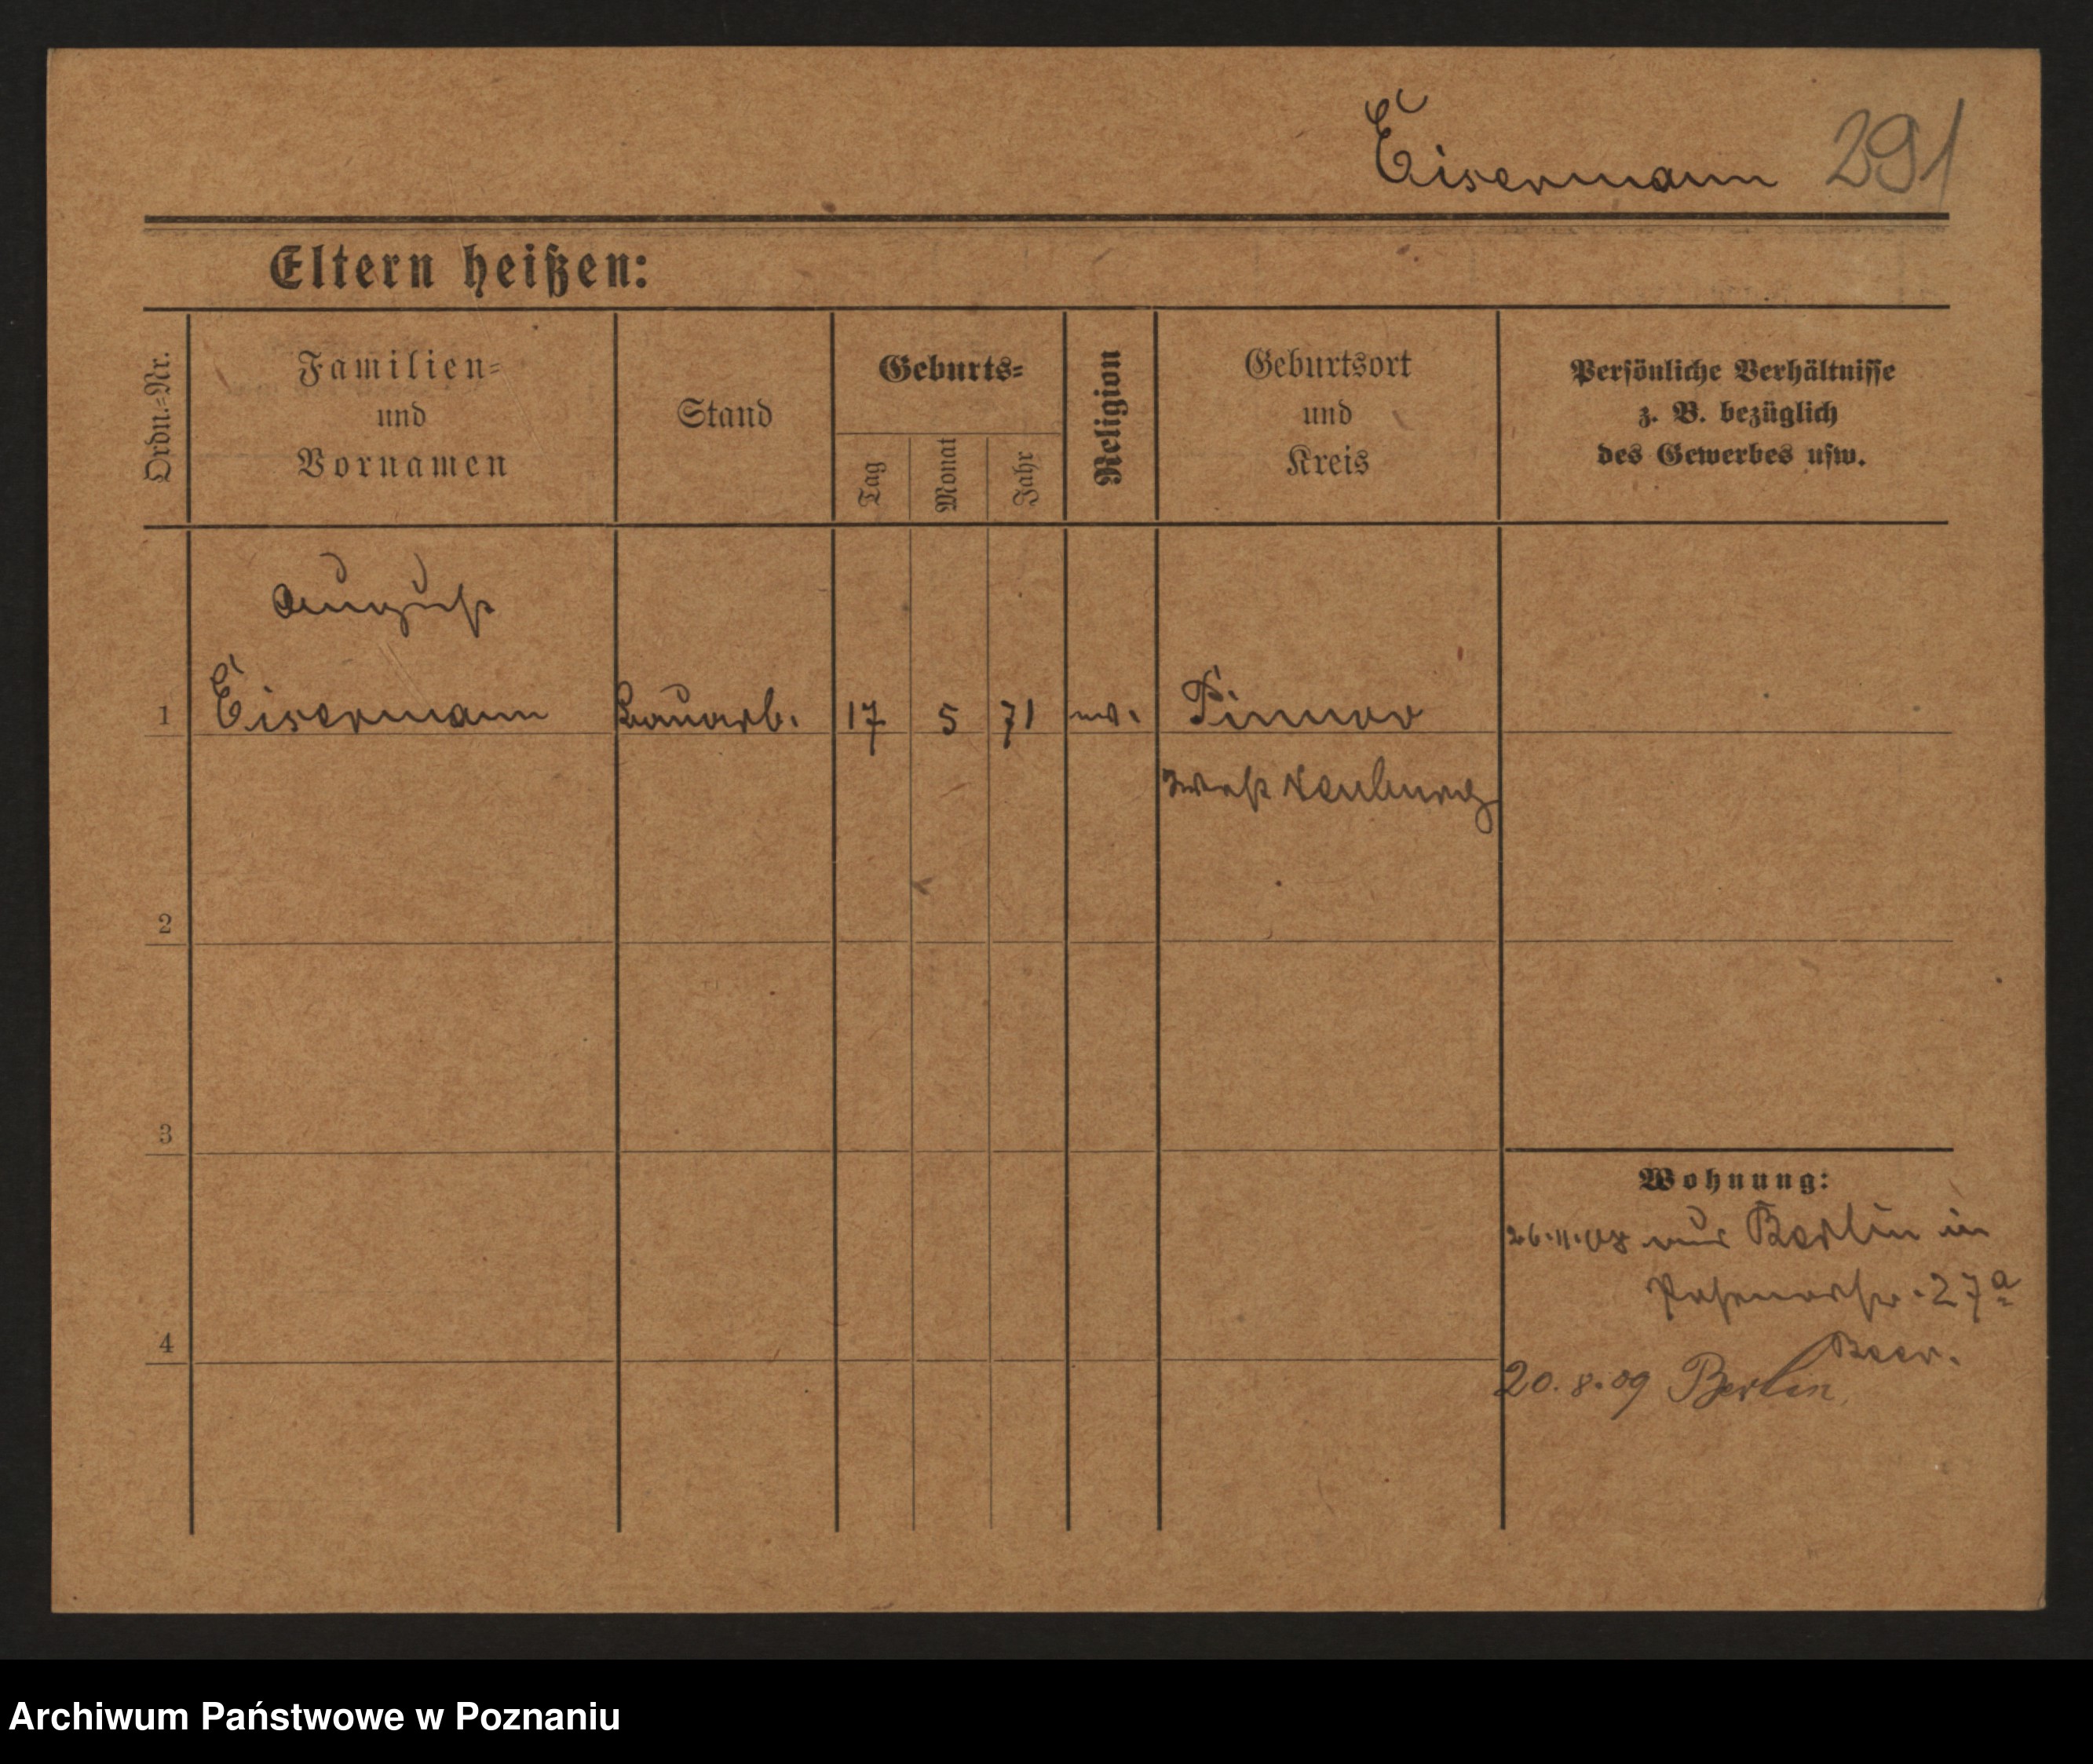 Eisermann 291
Eltern heißen:
Ordn.=Nr.
Familien=
und
Vornamen
Stand
Geburts=
Tag
Monat
Jahr
Religion
Geburtsort
und
Kreis
Persönliche Verhältnisse
z. B. bezüglich
des Gewerbes usw.
August
1 Eisermann Bauarb. 17 5 71 ev. Pinnow
West
2
3
4
Wohnung:
26.11.08 aus Berlin in
Posenerstr. 27a
Beer.
20.8.09 Berlin
Archiwum Państwowe w Poznaniu